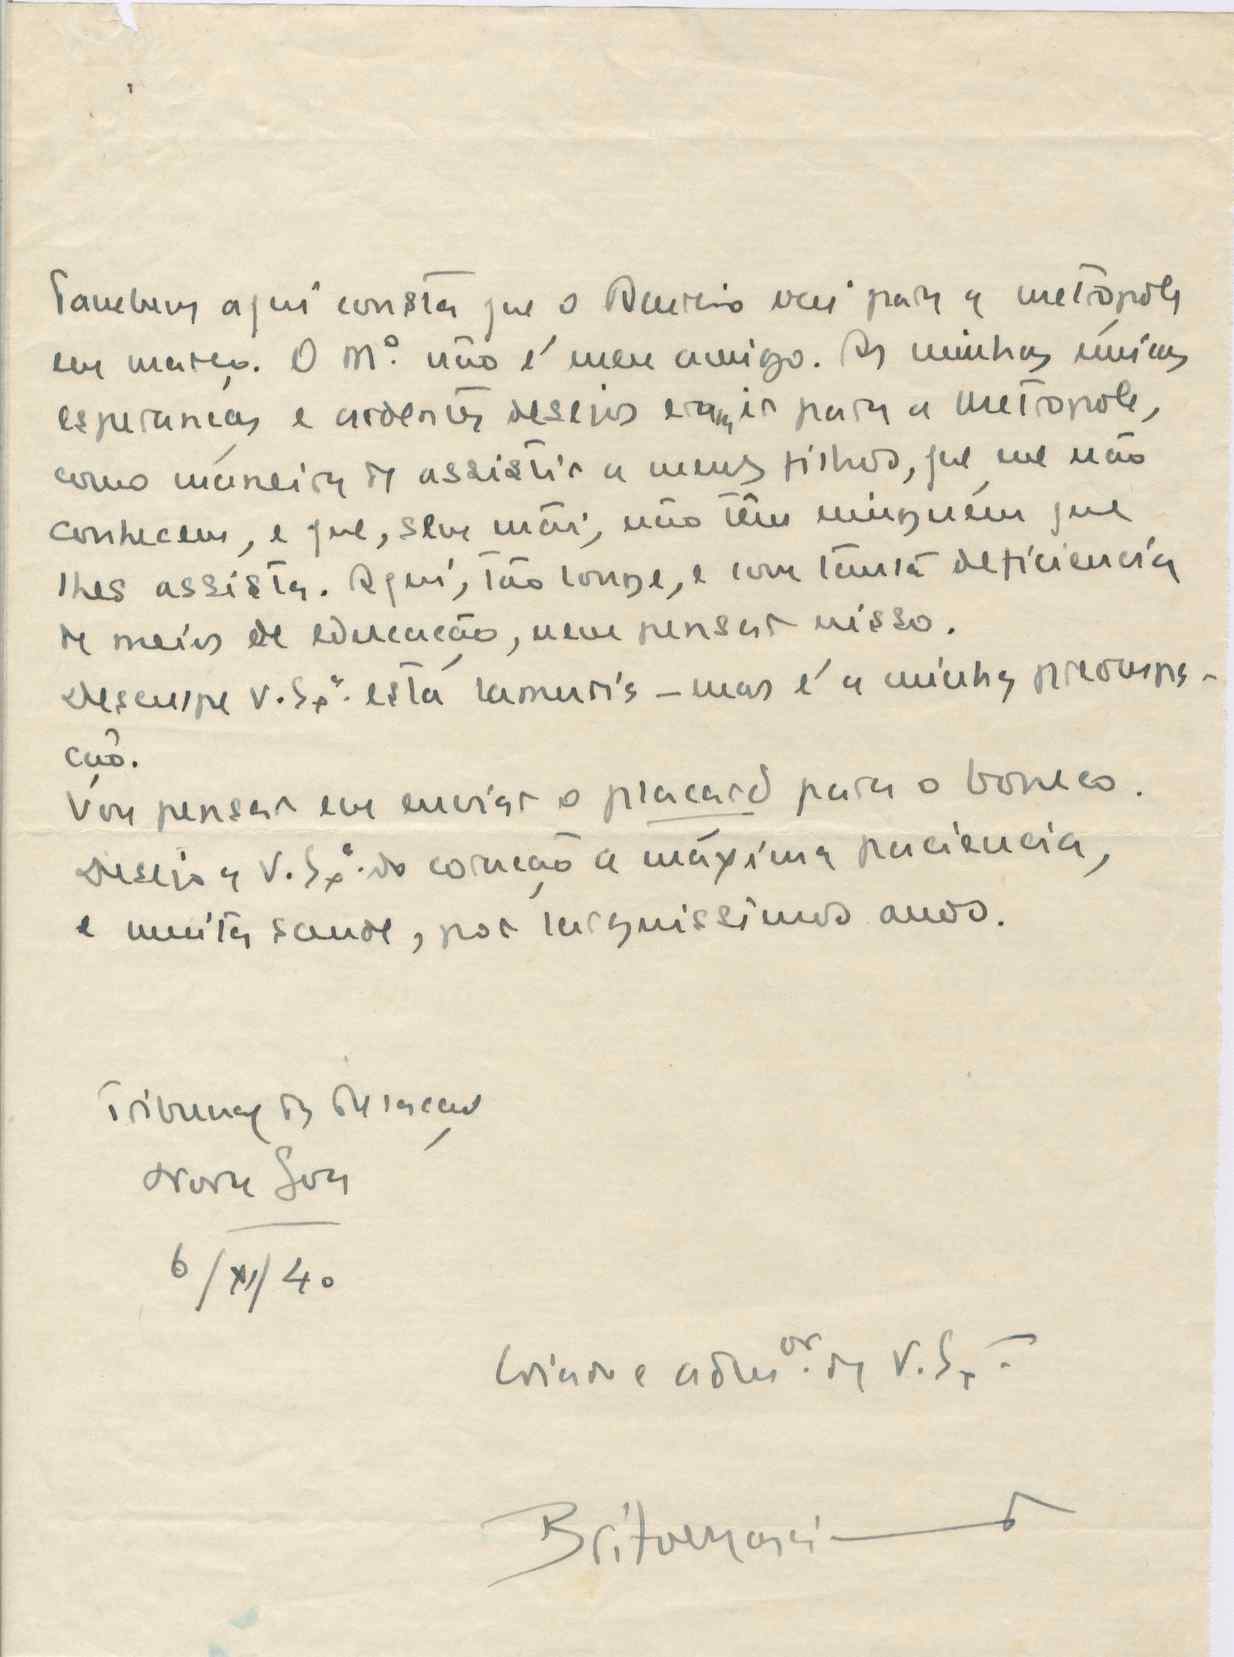 Tambem aqui consta que o Aureio vai para a metropole
em março. O Mº. não é meu amigo. As minhas únicas
esperanças e ardentes desejos eram ir para a Metropole,
como maneira de assistir a meus filhos, que me não
conhecem, e que, sem mãi, não têm ninguém que
lhes assista. Aqui, tão longe, e com tanta deficiencia
de meios de educação, nem pensar nisso.
Desculpe V. Sxª. esta lamuria – mas é a minha preocupa-
ção.
Vou pensar em enviar o placard para o boneco.
Desejo a V. Sxª. do coração a máxima paciencia,
e muita saude, por larguissimos anos.
Tribunal da Relação
Nova Goa
6/XI/40
Criado e admor. de V. Sxª.